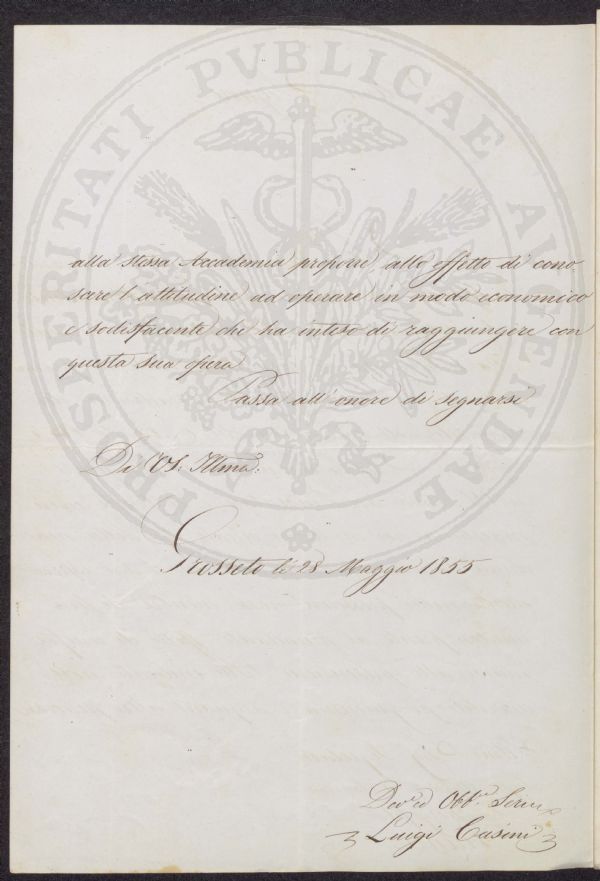 PROSPERITATI PUBLICAE AUGENDAE
alla stessa Accademia proporre, allo effetto di cono
scere l'attitudine ad operare in modo economico
e sodisfacente che ha inteso di raggiungere con
questa sua opera
Passa all'onore di segnarsi
Di VS: Illma:
Grosseto li 28 Maggio 1855
Dev.o ed Obb.o Serv.e
Luigi Casini